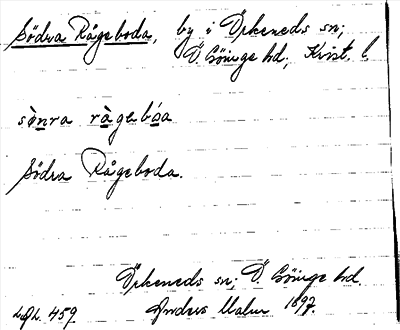 Södra Rågeboda, by i Örkeneds sn;
Ö. Göinge hd, Krist. l.
sònra ràgebòa
Södra Rågeboda.
Örkeneds sn; Ö. Göinge hd.
459. Anders Malm 1897.